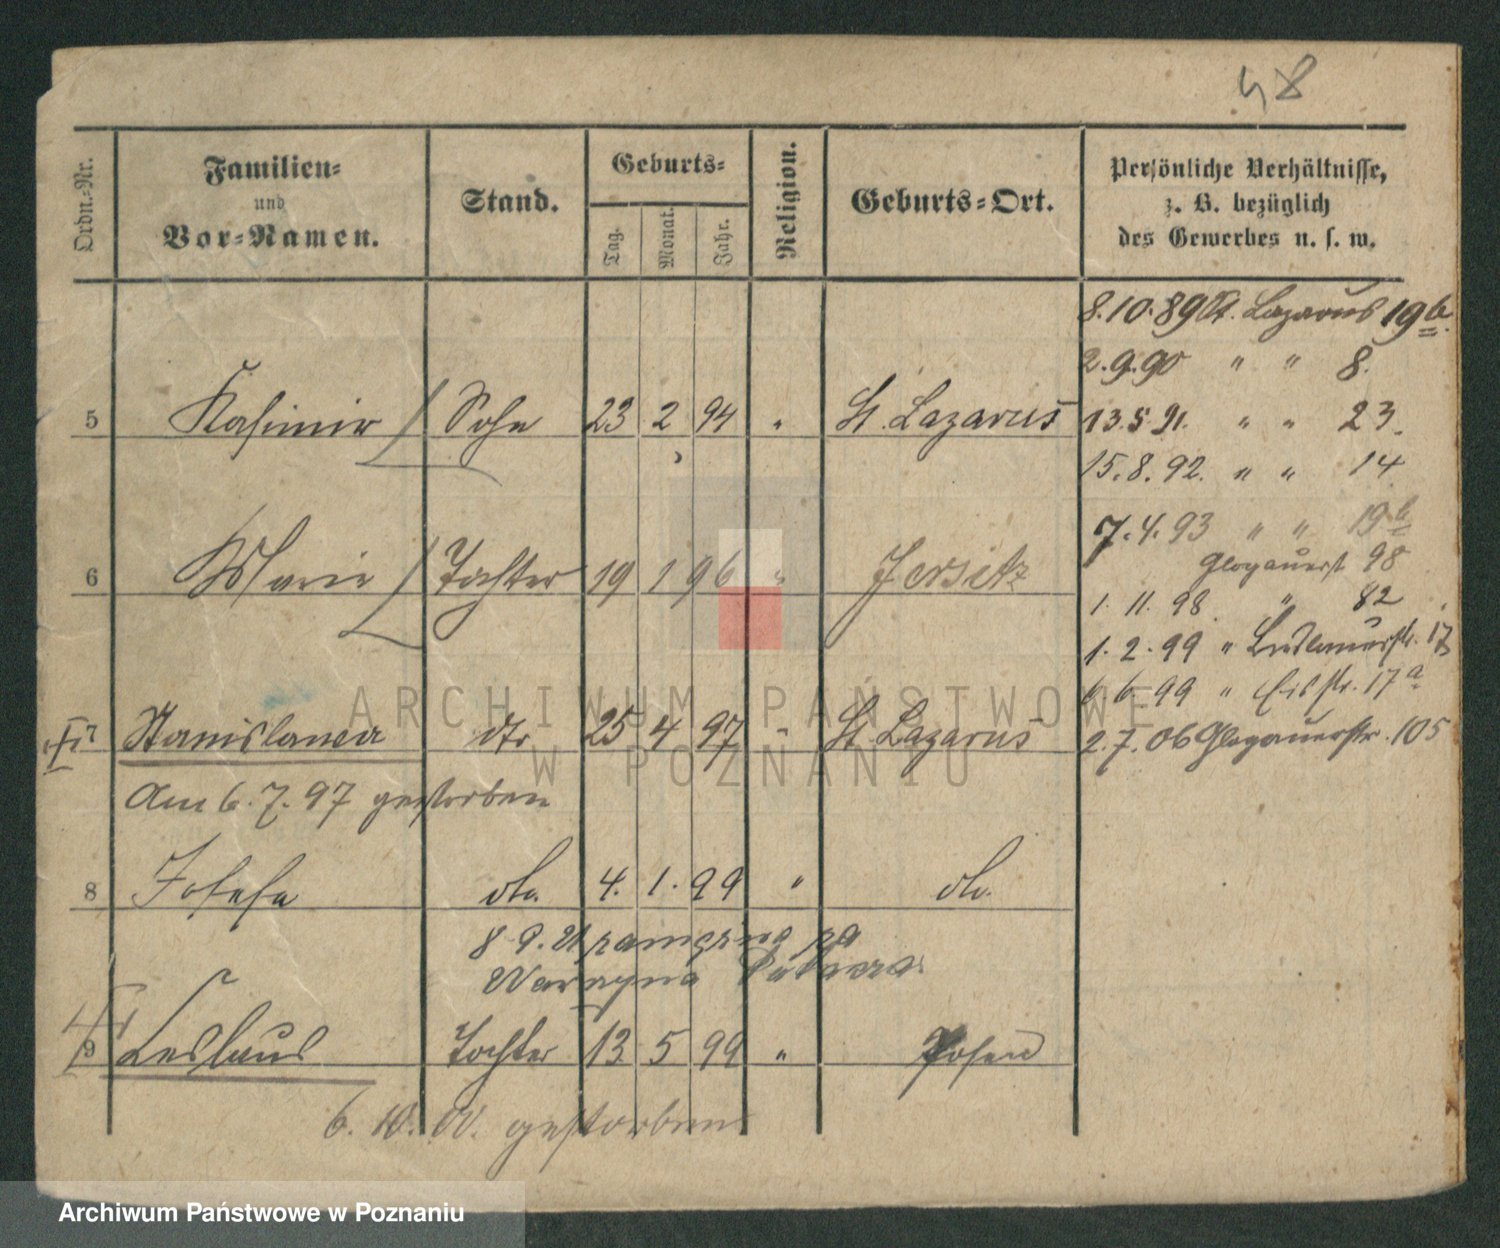 48
Ordn.-Nr.
Familien-
und
Vor-Namen.
Stand.
Geburts-
Tag.
Monat.
Jahr.
Religion.
Geburts-Ort.
Persönliche Verhältnisse,
z. B. bezüglich
des Gewerbes u. s. w.
8.10.89 St. Lazarus 19b.
2.9.90 " " 8.
5 Kasimir Sohn 23 2 94 " St. Lazarus
13.5.91. " " 23.
15.8.92. " " 14
7.4.93 " " 19b
Glogauerst 98
6 Marie Tochter 19 1 96 " Jersitz
1. 11. 98 " 82
1. 2. 99 " 17
6 6. 99 " 17a
7 Stanislawa dto 25 4 97 " St. Lazarus
2.7.06 Glogauerstr. 105
Am 6.7.97 gestorben
8 Josefa do. 4. 1. 99 " do.
8 9. 21 zamężna za
Wawrzyna
9 Leslaus Tochter 13 5 99 " Posen
6. 10. 00. gestorben
ARCHIWUM PAŃSTWOWE
W POZNANIU
Archiwum Państwowe w Poznaniu